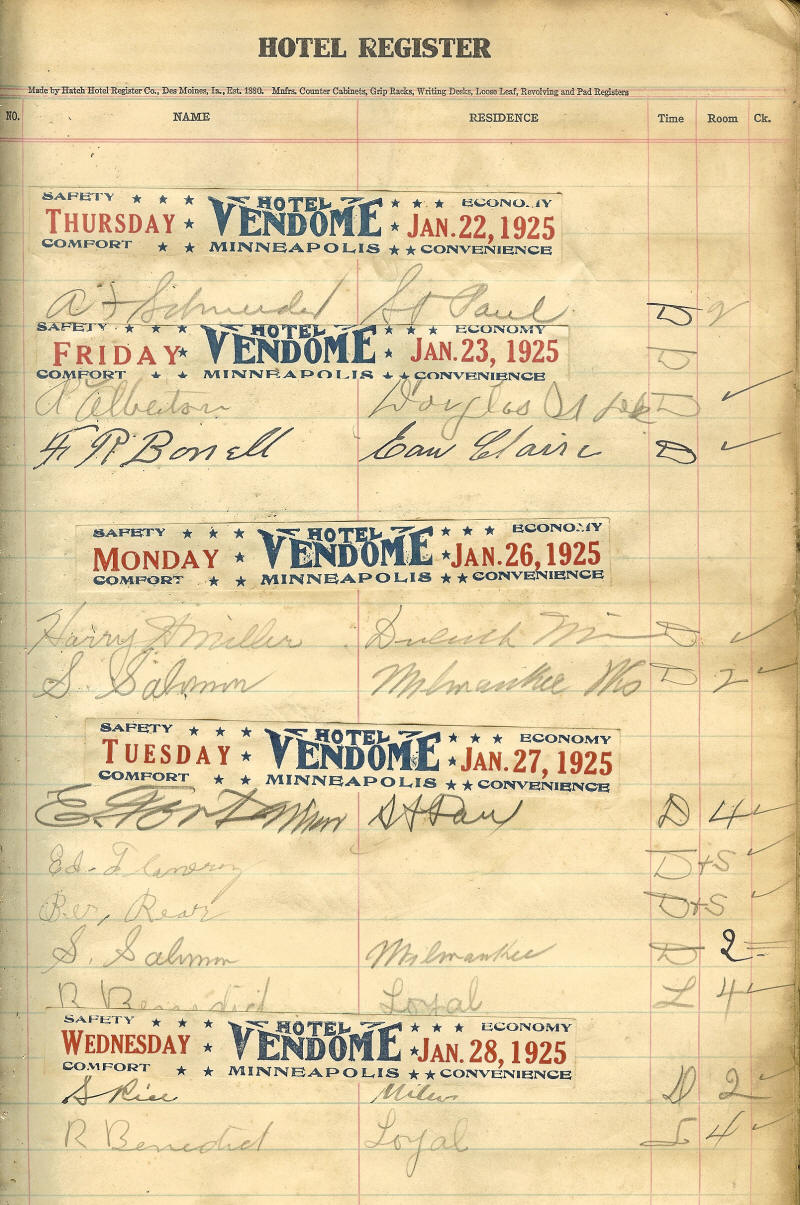 HOTEL REGISTER
Made by Hatch Hotel Register Co., Des Moines, Ia., Est. 1880. Mnfrs. Counter Cabinets, Grip Racks, Writing Desks, Loose Leaf, Revolving and Pad Registers
NO. NAME RESIDENCE Time Room Ck.
SAFETY HOTEL ECONOMY
THURSDAY VENDOME JAN. 22, 1925
COMFORT MINNEAPOLIS CONVENIENCE
A Schneider St Paul D 2
SAFETY HOTEL ECONOMY
FRIDAY VENDOME JAN. 23, 1925 D
COMFORT MINNEAPOLIS CONVENIENCE
Alberton Douglas D ✓
F R Bonell Eau Claire D ✓
SAFETY HOTEL ECONOMY
MONDAY VENDOME JAN. 26, 1925
COMFORT MINNEAPOLIS CONVENIENCE
Harry H Miller Duluth Min D ✓
S. Salomon Milwaukee Wis D 2 ✓
SAFETY HOTEL ECONOMY
TUESDAY VENDOME JAN. 27, 1925
COMFORT MINNEAPOLIS CONVENIENCE
E. St Paul D 4 ✓
Ed. D+S ✓
Rear D+S ✓
S. Salomon Milwaukee D 2
R Benedict Loyal L 4 ✓
SAFETY HOTEL ECONOMY
WEDNESDAY VENDOME JAN. 28, 1925
COMFORT MINNEAPOLIS CONVENIENCE
S Rice D 2 ✓
R Benedict Loyal L 4 ✓